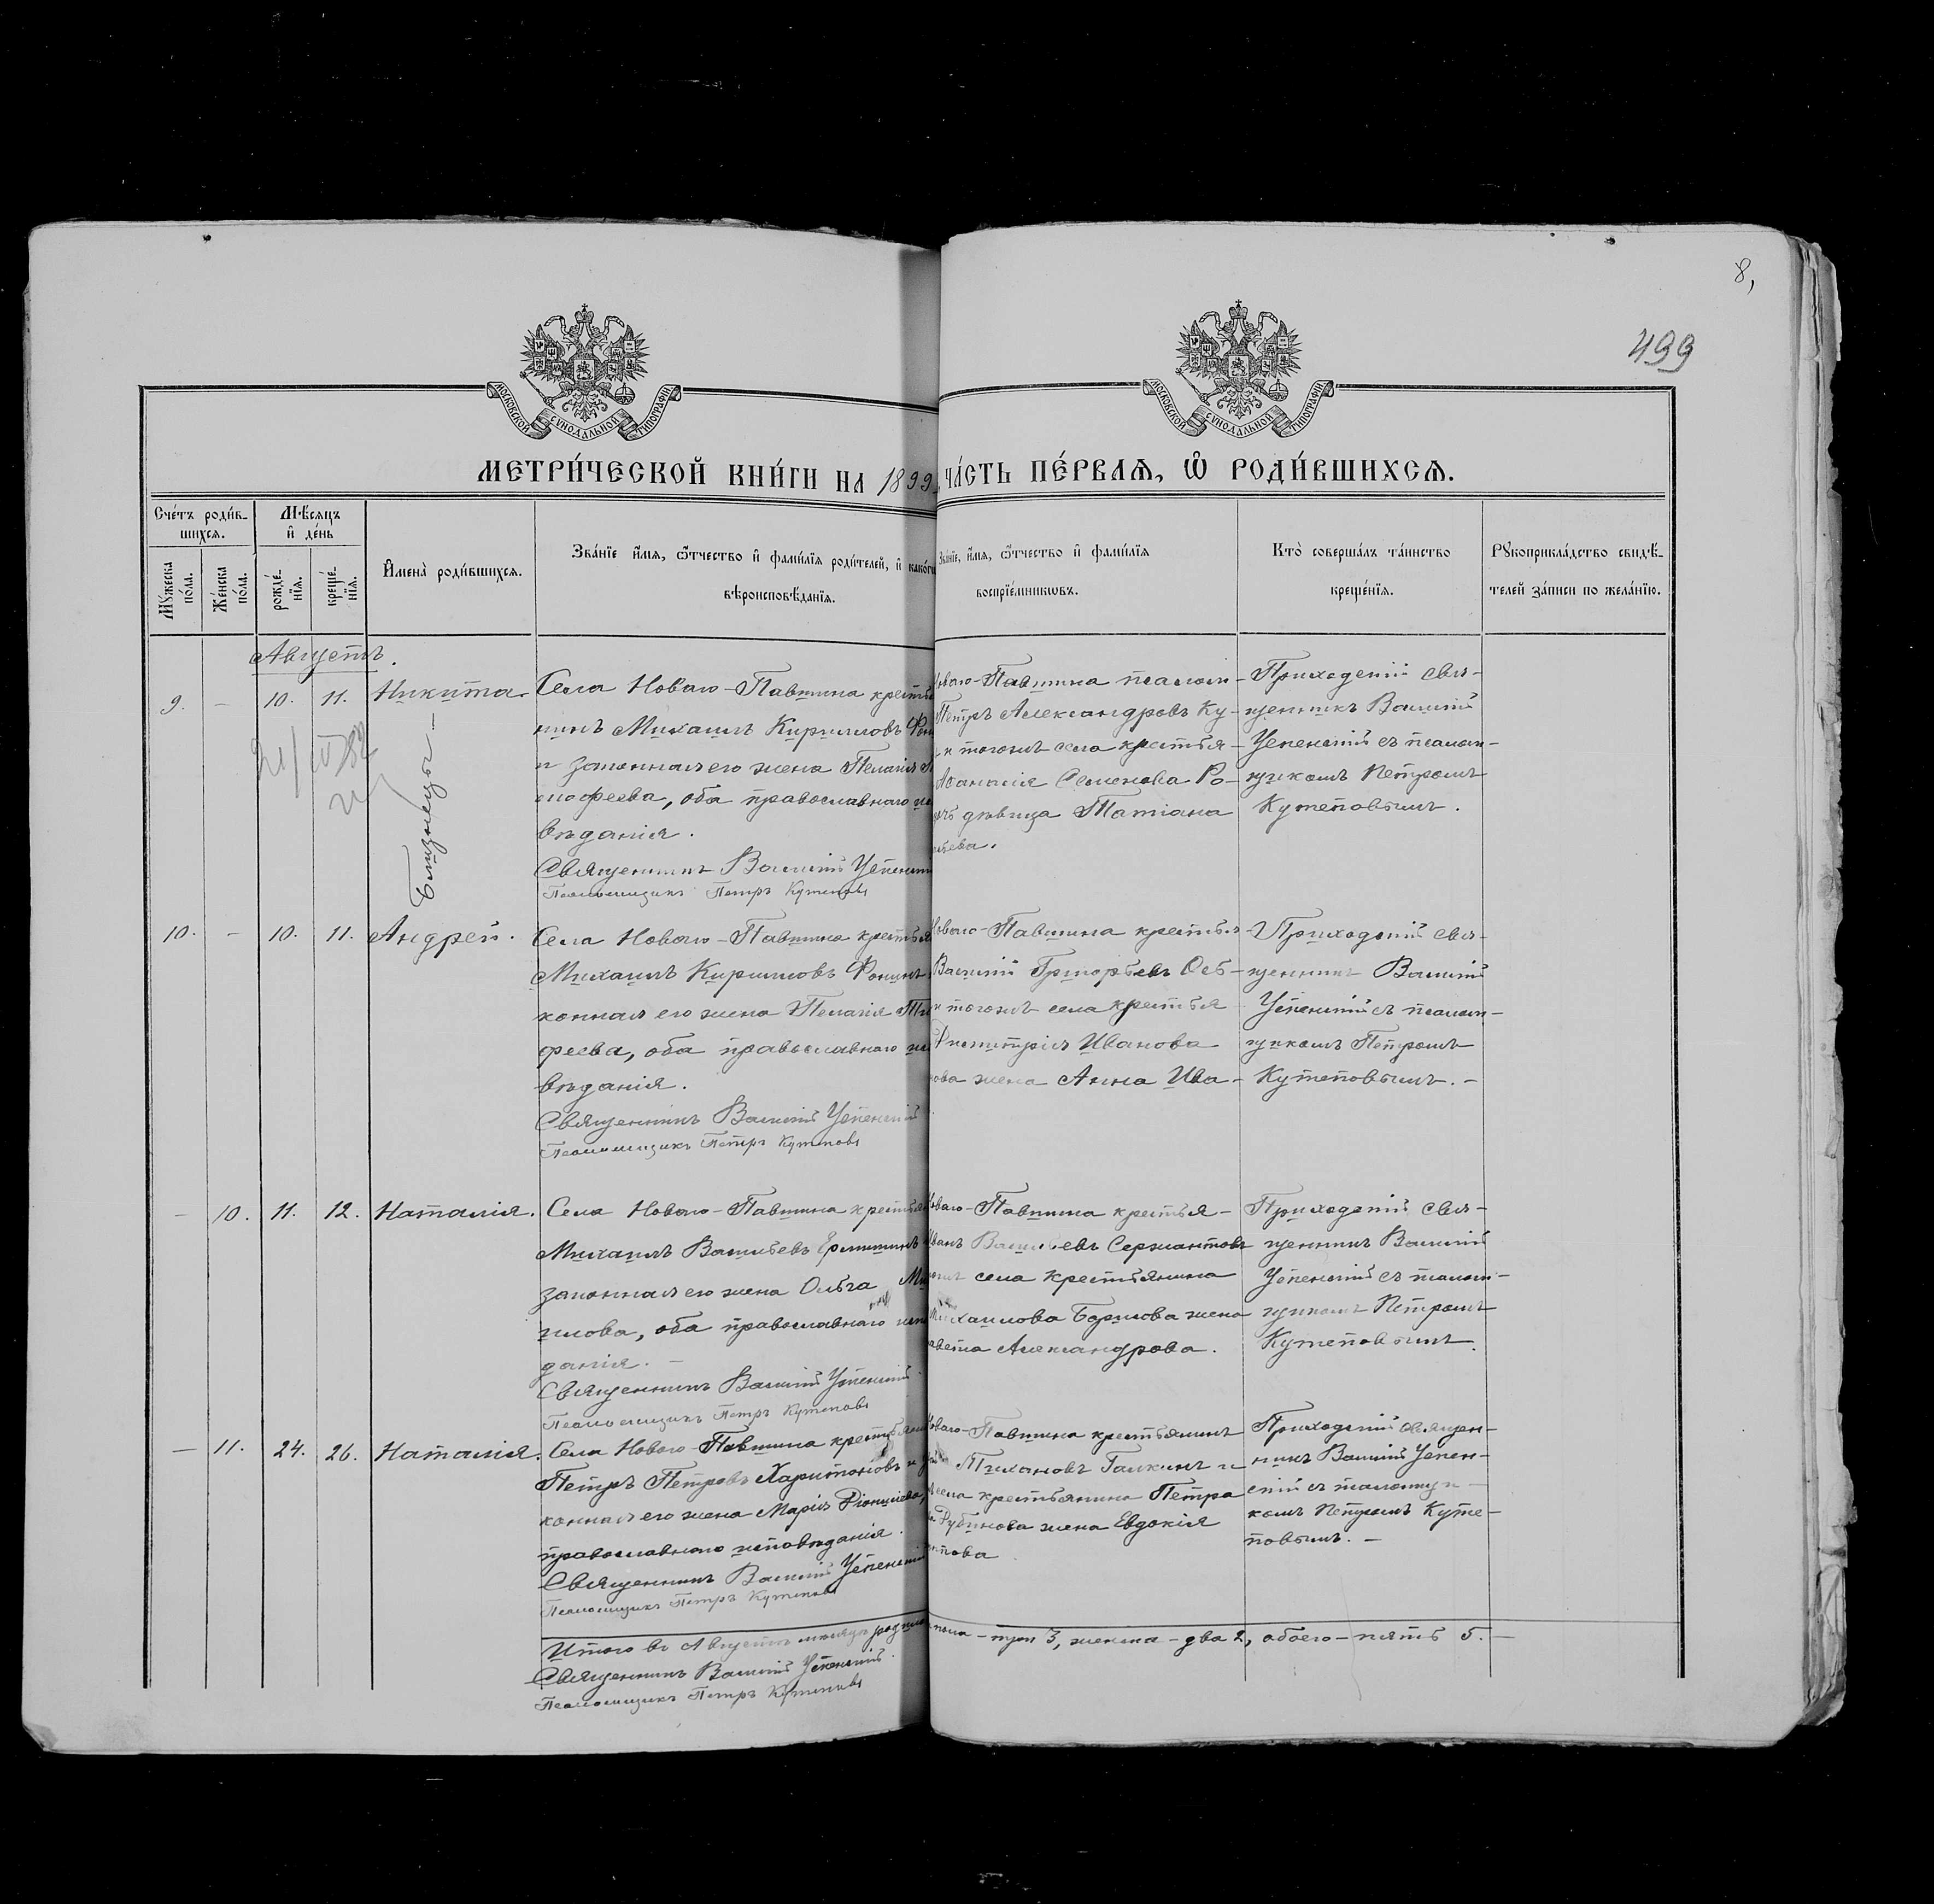 8,
499
МОСКОВСКОЙ СѴНОДАЛЬНОЙ ТИПОГРАФІИ
МОСКОВСКОЙ СѴНОДАЛЬНОЙ ТИПОГРАФІИ
МЕТРИ́ЧЕСКОЙ КНИ́ГИ НА 1899
ЧА́СТЬ ПЕ́РВАѦ, Ѡ РОДИ́ВШИХСѦ.
Сче́тъ роди́в-
шихсѧ.
Мꙋжеска по́ла.
Же́нска по́ла.
Мѣ́сѧцъ и де́нь
рожде́-
нїѧ.
креще́-
нїѧ.
Имена̀ роди́вшихсѧ.
Зва́нїе и́мѧ, ѻ́тчество и фами́лїѧ роди́телей, и како́гѡ
вѣроисповѣ́данїѧ.
Зва́нїе, и́мѧ, ѻ́тчество и фами́лїѧ
воспрїе́мникѡвъ.
Кто̀ соверша́лъ та́инство
креще́нїѧ.
Рꙋкоприкла́дство свидѣ́-
телей за́писи по жела́нїю.
Августъ.
9. - 10. 11. Никита.
Близнецы -
Села Новаго-Павшина крестья
нинъ Михаилъ Кирилловъ Фон
и законная его жена Пелагія
мофеева, оба православнаго ис
вѣданія.
Священникъ Василій Успенскій
Псаломщикъ Петръ Кутеповъ
Новаго-Павшина псалом-
Петръ Александровъ Ку-
и тогожъ села крестья-
Аѳанасія Семенова Ро-
дѣвица Татіана
Приходскій свя-
щенникъ Василій
Успенскій съ псалом-
щикомъ Петромъ
Кутеповымъ.
10. - 10. 11. Андрей.
Села Новаго-Павшина крестья
Михаилъ Кирилловъ Фонинъ
конная его жена Пелагія Ти
феева, оба православнаго ис
вѣданія.
Священникъ Василій Успенскій
Псаломщикъ Петръ Кутеповъ
Новаго-Павшина крестья
Василій Григорьевъ
и тогожъ села крестья
Иванова
нова жена Анна Ива-
Приходскій свя-
щенникъ Василій
Успенскій съ псалом-
щикомъ Петромъ
Кутеповымъ. -
- 10. 11. 12. Наталія.
Села Новаго-Павшина крестья
Михаилъ Васильевъ Ермишинъ
законная его жена Ольга Ми
илова, оба православнаго испо
данія. -
Священникъ Василій Успенскій.
Псаломщикъ Петръ Кутеповъ
Новаго-Павшина крестья-
Иванъ Васильевъ Сержантовъ
села крестьянина
Михаилова Борисова жена
завета Александрова.
Приходскій свя-
щенникъ Василій
Успенскій съ псалом-
щикомъ Петромъ
Кутеповымъ.
- 11. 24. 26. Наталія.
Села Новаго-Павшина крестьянин
Петръ Петровъ Харитоновъ и
конная его жена Марія
православнаго исповѣданія.
Священникъ Василій Успенскій
Псаломщикъ Петръ Кутеповъ
Новаго-Павшина крестьянинъ
Тихановъ Галкинъ и
села крестьянина Петра
Рубинова жена Евдокія
Приходскій священ-
никъ Василій Успен-
скій съ псаломщи-
комъ Петромъ Куте-
повымъ. -
Итого въ Августѣ мѣсяцѣ родило
пола - три 3, женска - два 2, обоего - пять 5. -
Священникъ Василій Успенскій.
Псаломщикъ Петръ Кутеповъ